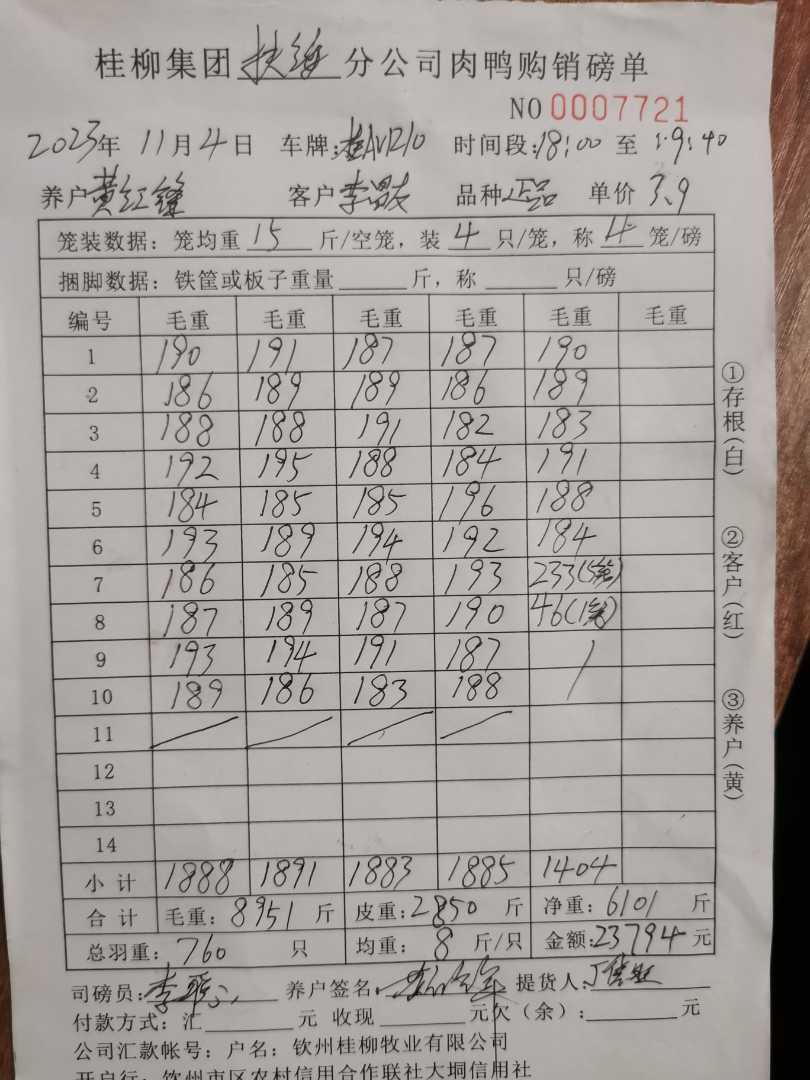 桂柳集团扶绥分公司肉鸭购销磅单
NO 0007721
2023年 11月4日 车牌:桂AV1210 时间段:18:00 至 19:40
养户 黄红锋 客户 李 品种 正品 单价 3.9
笼装数据: 笼均重 15 斤/空笼, 装 4 只/笼, 称 4 笼/磅
捆脚数据: 铁筐或板子重量 斤, 称 只/磅
编号 毛重 毛重 毛重 毛重 毛重 毛重
1 190 191 187 187 190
2 186 189 189 186 189
3 188 188 191 182 183
4 192 195 188 184 191
5 184 185 185 196 188
6 193 189 194 192 184
7 186 185 188 193 233(5笼)
8 187 189 187 190 46(1笼)
9 193 194 191 187 /
10 189 186 183 188
11 / / / /
12
13
14
小计 1888 1891 1883 1885 1404
合计 毛重: 8951 斤 皮重: 2850 斤 净重: 6101 斤
总羽重: 760 只 均重: 8 斤/只 金额: 23794 元
司磅员: 李 养户签名: 提货人:
付款方式: 汇 元 收现 元欠(余): 元
公司汇款帐号: 户名: 钦州桂柳牧业有限公司
开户行: 钦州市区农村信用合作联社大垌信用社
①存根(白)
②客户(红)
③养户(黄)